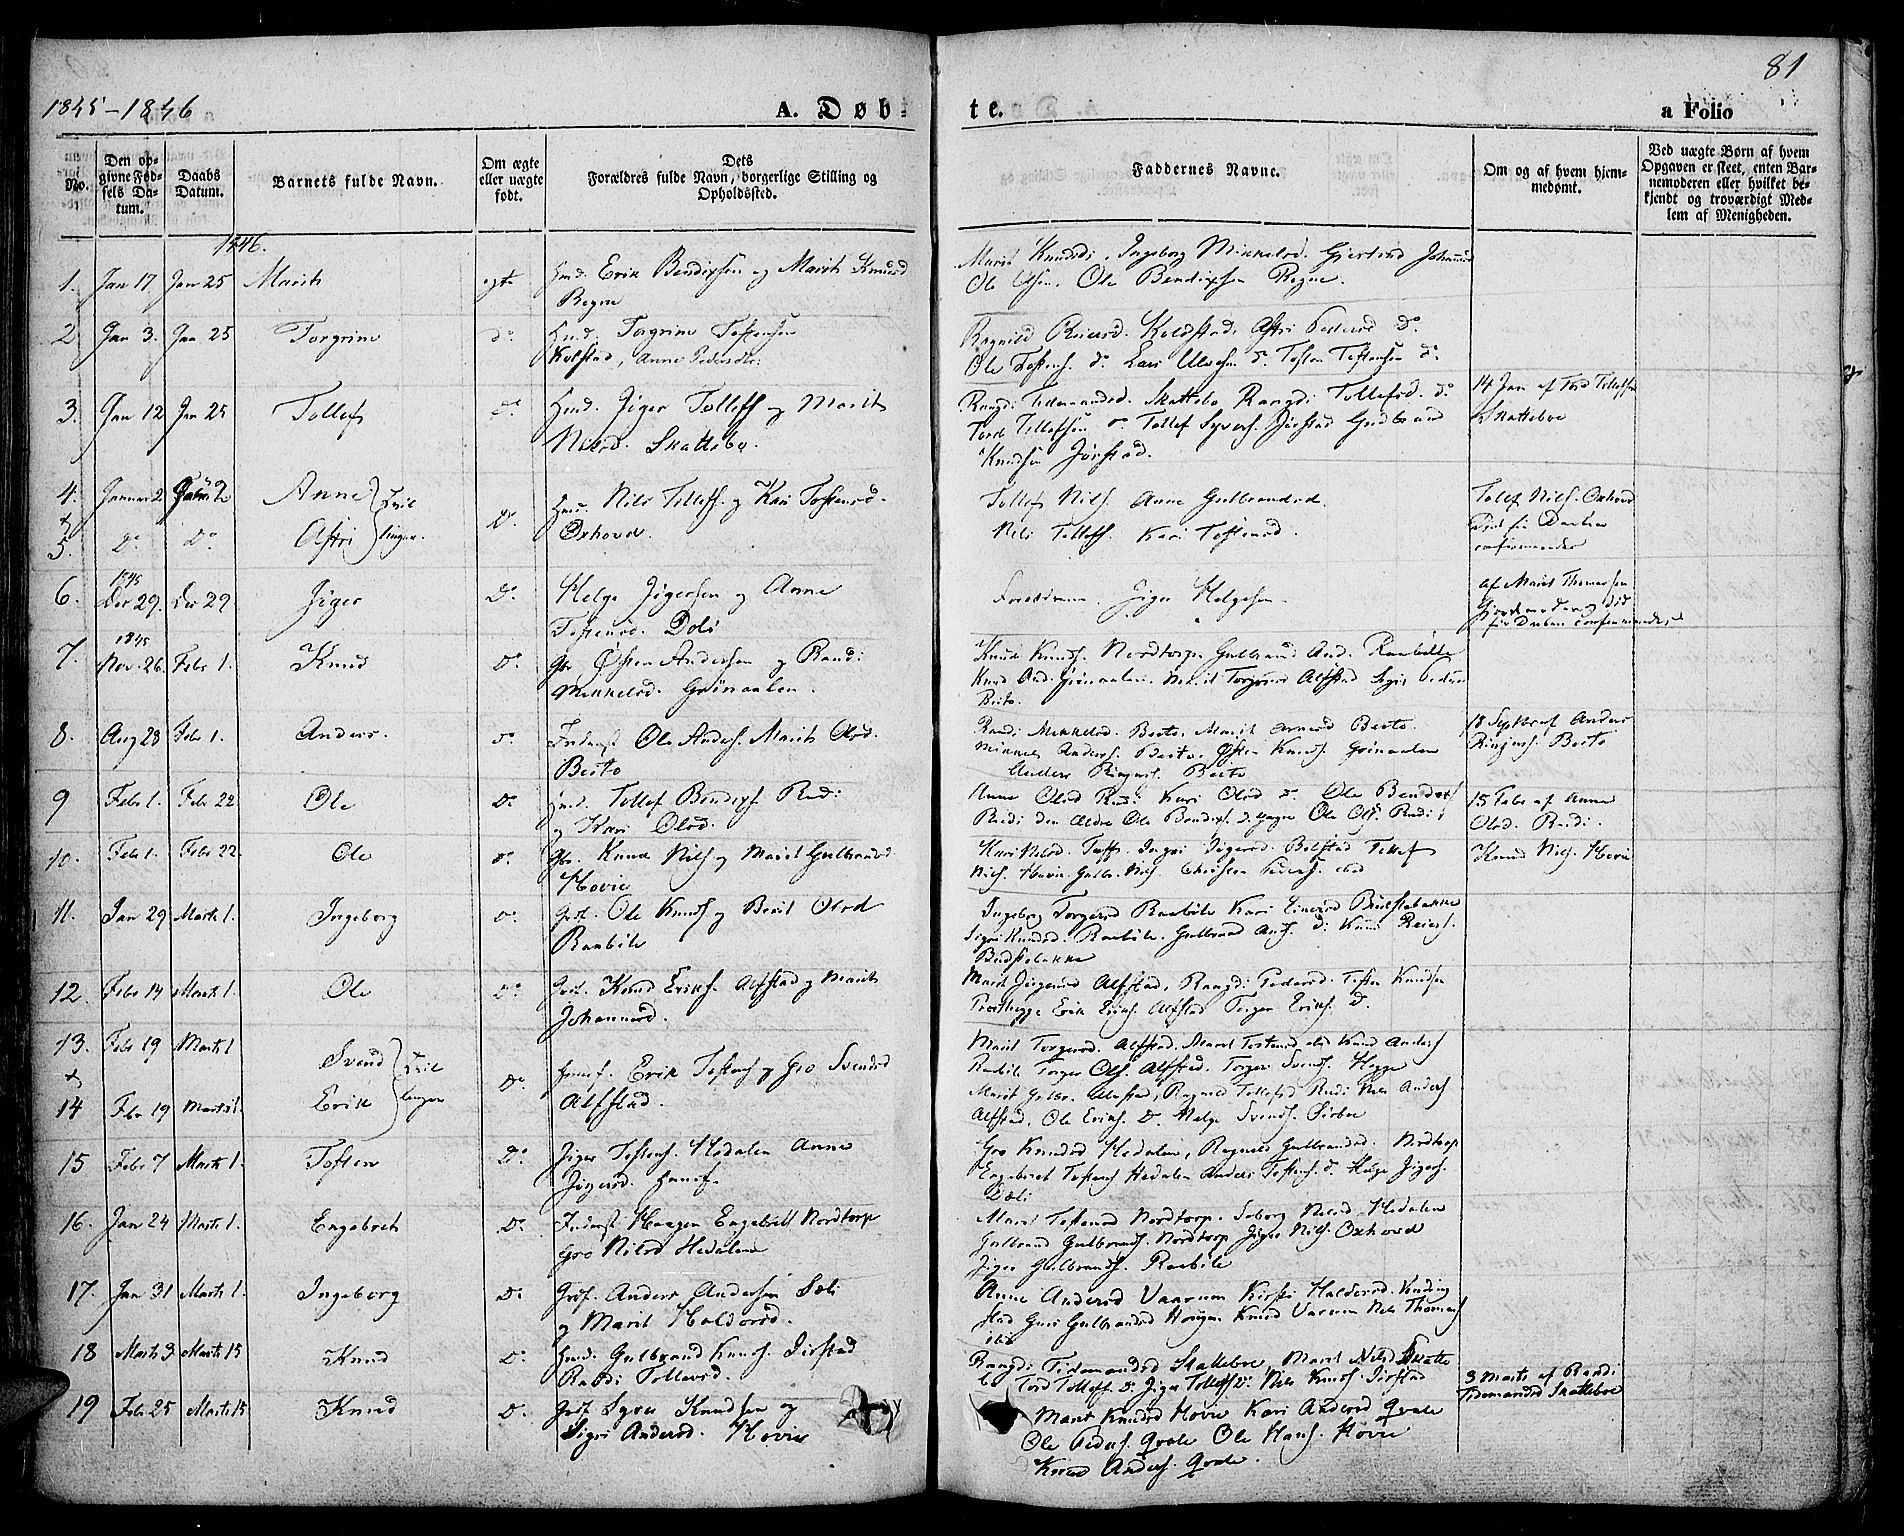 81
1845-1846
A. Døb=
te.
a Folio
No.
Den op=
givne Fød=
sels Da=
tum.
Daabs
Datum.
Barnets fulde Navn.
Om ægte
eller uægte
født.
Dets
Forældres fulde Navn, borgerlige Stilling og
Opholdssted.
Faddernes Navne.
Om og af hvem hjem=
medøbt.
Ved uægte Børn af hvem
Opgaven er skeet, enten Bar=
nemoderen eller hvilket be=
kjendt og troværdigt Med=
lem af Menigheden.
1846.
1. Jan 17 Jan 25 Marit egte Hmd. Erik Bendixsen og Marit Knudsd
Begne
Marit Knudsd. Ingeborg Mikkelsd. Gjertrud Johannsd
Ole Olsen. Ole Bendixsen Begne.
2 Jan 3. Jan 25 Torgrim do Hmd. Torgrim Tostensen
Kolstad, Anne Pedersdtr.
Ragnild Reiersd. Koldstad, Astri Pedersd do
Ole Tostens. do Lars Olsen do Tosten Tostensen do
3. Jan 12 Jan 25 Tollef do Hmd. Jiger Tollefs og Marit
Nilsd. Skattebo.
Rangdi Tidemandsd. Skattebo Rangdi Tollefsd. do
Tord Tollefsen do Tollef Syvers. Jørstad Gudbrand
Knudsen Jørstad.
14 Jan af Tord Tollefsen
Skatteboe
4. Januar 2 Anne Tvil
Hmd. Nils Tollefs. og Kari Tostensd.
Tollef Nils. Anne Gulbrandsd.
Tollef Nils. Oxhovd
5. Do Do Astri linger. Do
Oxhovd.
Nils Tollefs. Kari Tostensd.
Død før Daaben
confirmeredes
6. 1845
Dec 29. Dec 29 Jiger Do Helge Jigersen og Anne
Tostensd. Dæli
Forældrene. Jiger Helgesen
af Marit Thomassen
Gjordmoder, død
før Daaben confirmeredes
7. 1845
Nov. 26. Febr 1. Knud Do Gbr. Østen Andersen og Randi
Mikkelsd. Grønaalen.
Knud Knuds. Nordtorp Gulbrand And. Raabøle
Knud And. Grønaalen. Marit Torgersd Alfstad Sigri Peders
Beito.
8. Aug 28 Febr 1. Anders. do Inderst Ole Anders. Marit Olsd.
Beito
Randi Mikkelsd. Beito. Marit Arnesd Beito.
Mikkel Anders. Beito. Østen Knuds. Grønaalen
Anders Ringers. Beito
18 Sept af Anders
Ringers. Beito
9 Febr 1. Febr 22 Ole Do Hmd. Tollef Bendixs. Rudi
og Kari Olsd.
Anne Olsd Rudi Kari Olsd do Ole Bendixs
Rudi den Ældre Ole Bendixs. d. Yngre Ole Ols. Rudi
15 Febr af Anne
Olsd. Rudi.
10. Febr 1. Febr 22. Ole do Gbr. Knud Nils og Marit Gulbrandsd
Hovie
Kari Nilsd. Ingri Jigersd. Bolstad Tollef
Nils. Hovie Gulbr. Nils Christen Peders. ibid
Knud Nils. Hovie
11. Jan 29 Marts 1. Ingeborg do Grdf. Ole Knuds og Berit Olsd
Raabøle
Ingeborg Torgersd Raabøle Kari Einersd Briskebakke
Sigri Knudsd. Raabøle. Gulbrand And. do Knud Reiers.
12. Febr 14 Marts 1. Ole Do Grdf. Knud Eriks. Alfstad og Marit
Johannesd.
Marit Jørgensd Alfstad, Rangdi Pedersd. Tosten Knudsen
Præsthegge Erik Eriks. Alfstad Torger Eriks. do
13. Febr 19 Marts 1 Svend Tvil
14 Febr 19 Marts 1. Erik linger
Do Huusf. Erik Tostens og Gro Svendsd
Alfstad.
Marit Torgersd. Alfstad. Marit Tostensd ibid Knud Anders
Raabøle Torger Ols. Alfstad. Torger Svends. Hegge
Marit Gulbr. Alfstad, Ragnild Tollefsd Rudi Nils Anders
Alfstad, Ole Eriks. do Helge Svends.
15 Febr 7 Marts 1. Tosten Do Jiger Tostens. Hedalen Anne
Jigersd. Huusf.
Gro Knudsd Hedalen, Ragnild Gulbrandsd. Nordtorp
Engebret Tostens Hedalen Anders Tostens. do Helge Jigers.
Dæli
16. Jan 24 Marts 1. Engebret Do Inderst Haagen Engebrets Nordtorp
Gro Nilsd Hedalen
Marit Tostensd Nordtorp. Soborg Nilsd Hedalen
Gulbrand Gulbrands. Nordtorp Jiger Nils. Oxhovd
Jiger Gulbrands. Raabøle
17. Jan 31 Marts 1. Ingeborg Do Grdf. Anders Andersen Sæli
og Marit Haldorsd.
Anne Andersd Vaarum Kirsti Haldorsd.
stad Guri Gulbrandsd Hougen Knud Vaarum Nils Thomas
ibid
18 Marts 3 Marts 15 Knud Do Hmd. Gulbrand Knuds. Jørstad
Randi Tollevsd.
Rangdi Tidemandsd Skatteboe, Marit Nilsd Skatte
bo Tord Tollefs. do Jiger Tollefs do Nils Knuds. Jørstad
3 Marts af Randi
Tidemandsd Skatteboe
19 Febr 25 Marts 15 Knud Do Grdf. Syver Knudsen og
Sigri Andersd. Hovie
Marit Knudsd Hovie Kari Andersd Qvale
Ole Peders. Qvale Ole Hans. Hovie
Knud Anders. Qvale.